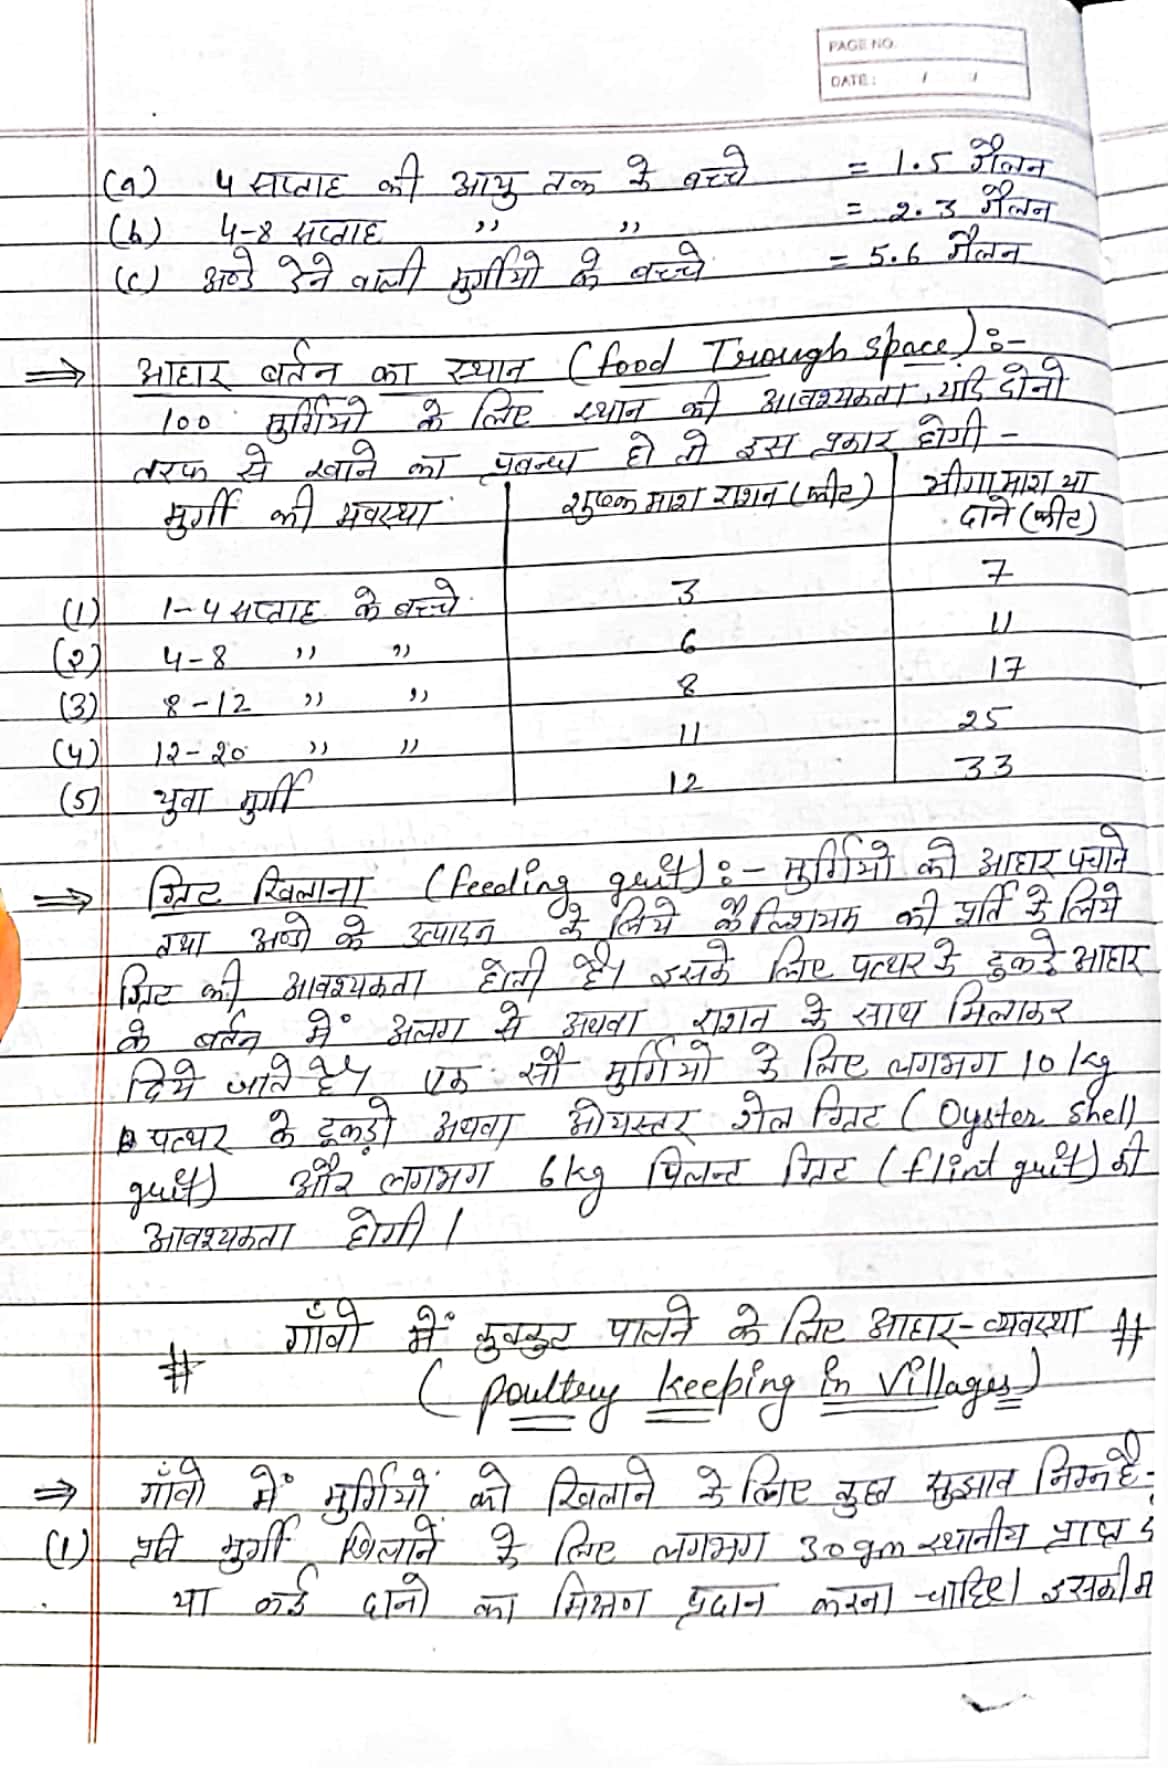 PAGE NO.
DATE: / /
(a) 4 सप्ताह की आयु तक के बच्चे = 1.5 गैलन
(b) 4-8 सप्ताह ,, ,, = 2.3 गैलन
(c) अण्डे देने वाली मुर्गीयो के बच्चे = 5.6 गैलन
⇒ आहार बर्तन का स्थान (food Trough space):-
100 मुर्गियो के लिए स्थान की आवश्यकता, यदि दोनो
तरफ से खाने का प्रबन्ध हो तो इस प्रकार होगी -
मुर्गी की अवस्था | शुष्क माश राशन (फीट) | भीगा माश या दाने (फीट)
(1) 1-4 सप्ताह के बच्चे 3 7
(2) 4-8 ,, ,, 6 11
(3) 8-12 ,, ,, 8 17
(4) 12-20 ,, ,, 11 25
(5) युवा मुर्गी 12 33
⇒ ग्रिट खिलाना (feeding grit):- मुर्गियो को आहार पचाने
तथा अण्डो के उत्पादन के लिये कैल्शियम की पूर्ति के लिये
ग्रिट की आवश्यकता होती है। इसके लिए पत्थर के टुकडे आहार
के बर्तन में अलग से अथवा राशन के साथ मिलाकर
दिये जाते है। एक सौ मुर्गियो के लिए लगभग 10 kg
पत्थर के टूकड़ो अथवा ओयस्तर शेल ग्रिट (Oyster shell
grit) और लगभग 6 kg फ्लिन्ट ग्रिट (flint grit) की
आवश्यकता होगी।
# गाँवो में कुक्कुट पालने के लिए आहार-व्यवस्था #
(poultry keeping in villages)
⇒ गाँवो में मुर्गियों को खिलाने के लिए कुछ सुझाव निम्न है-
(1) प्रति मुर्गी खिलाने के लिए लगभग 30 gm स्थानीय
या कई दानो का मिश्रण प्रदान करना चाहिए। इसकी